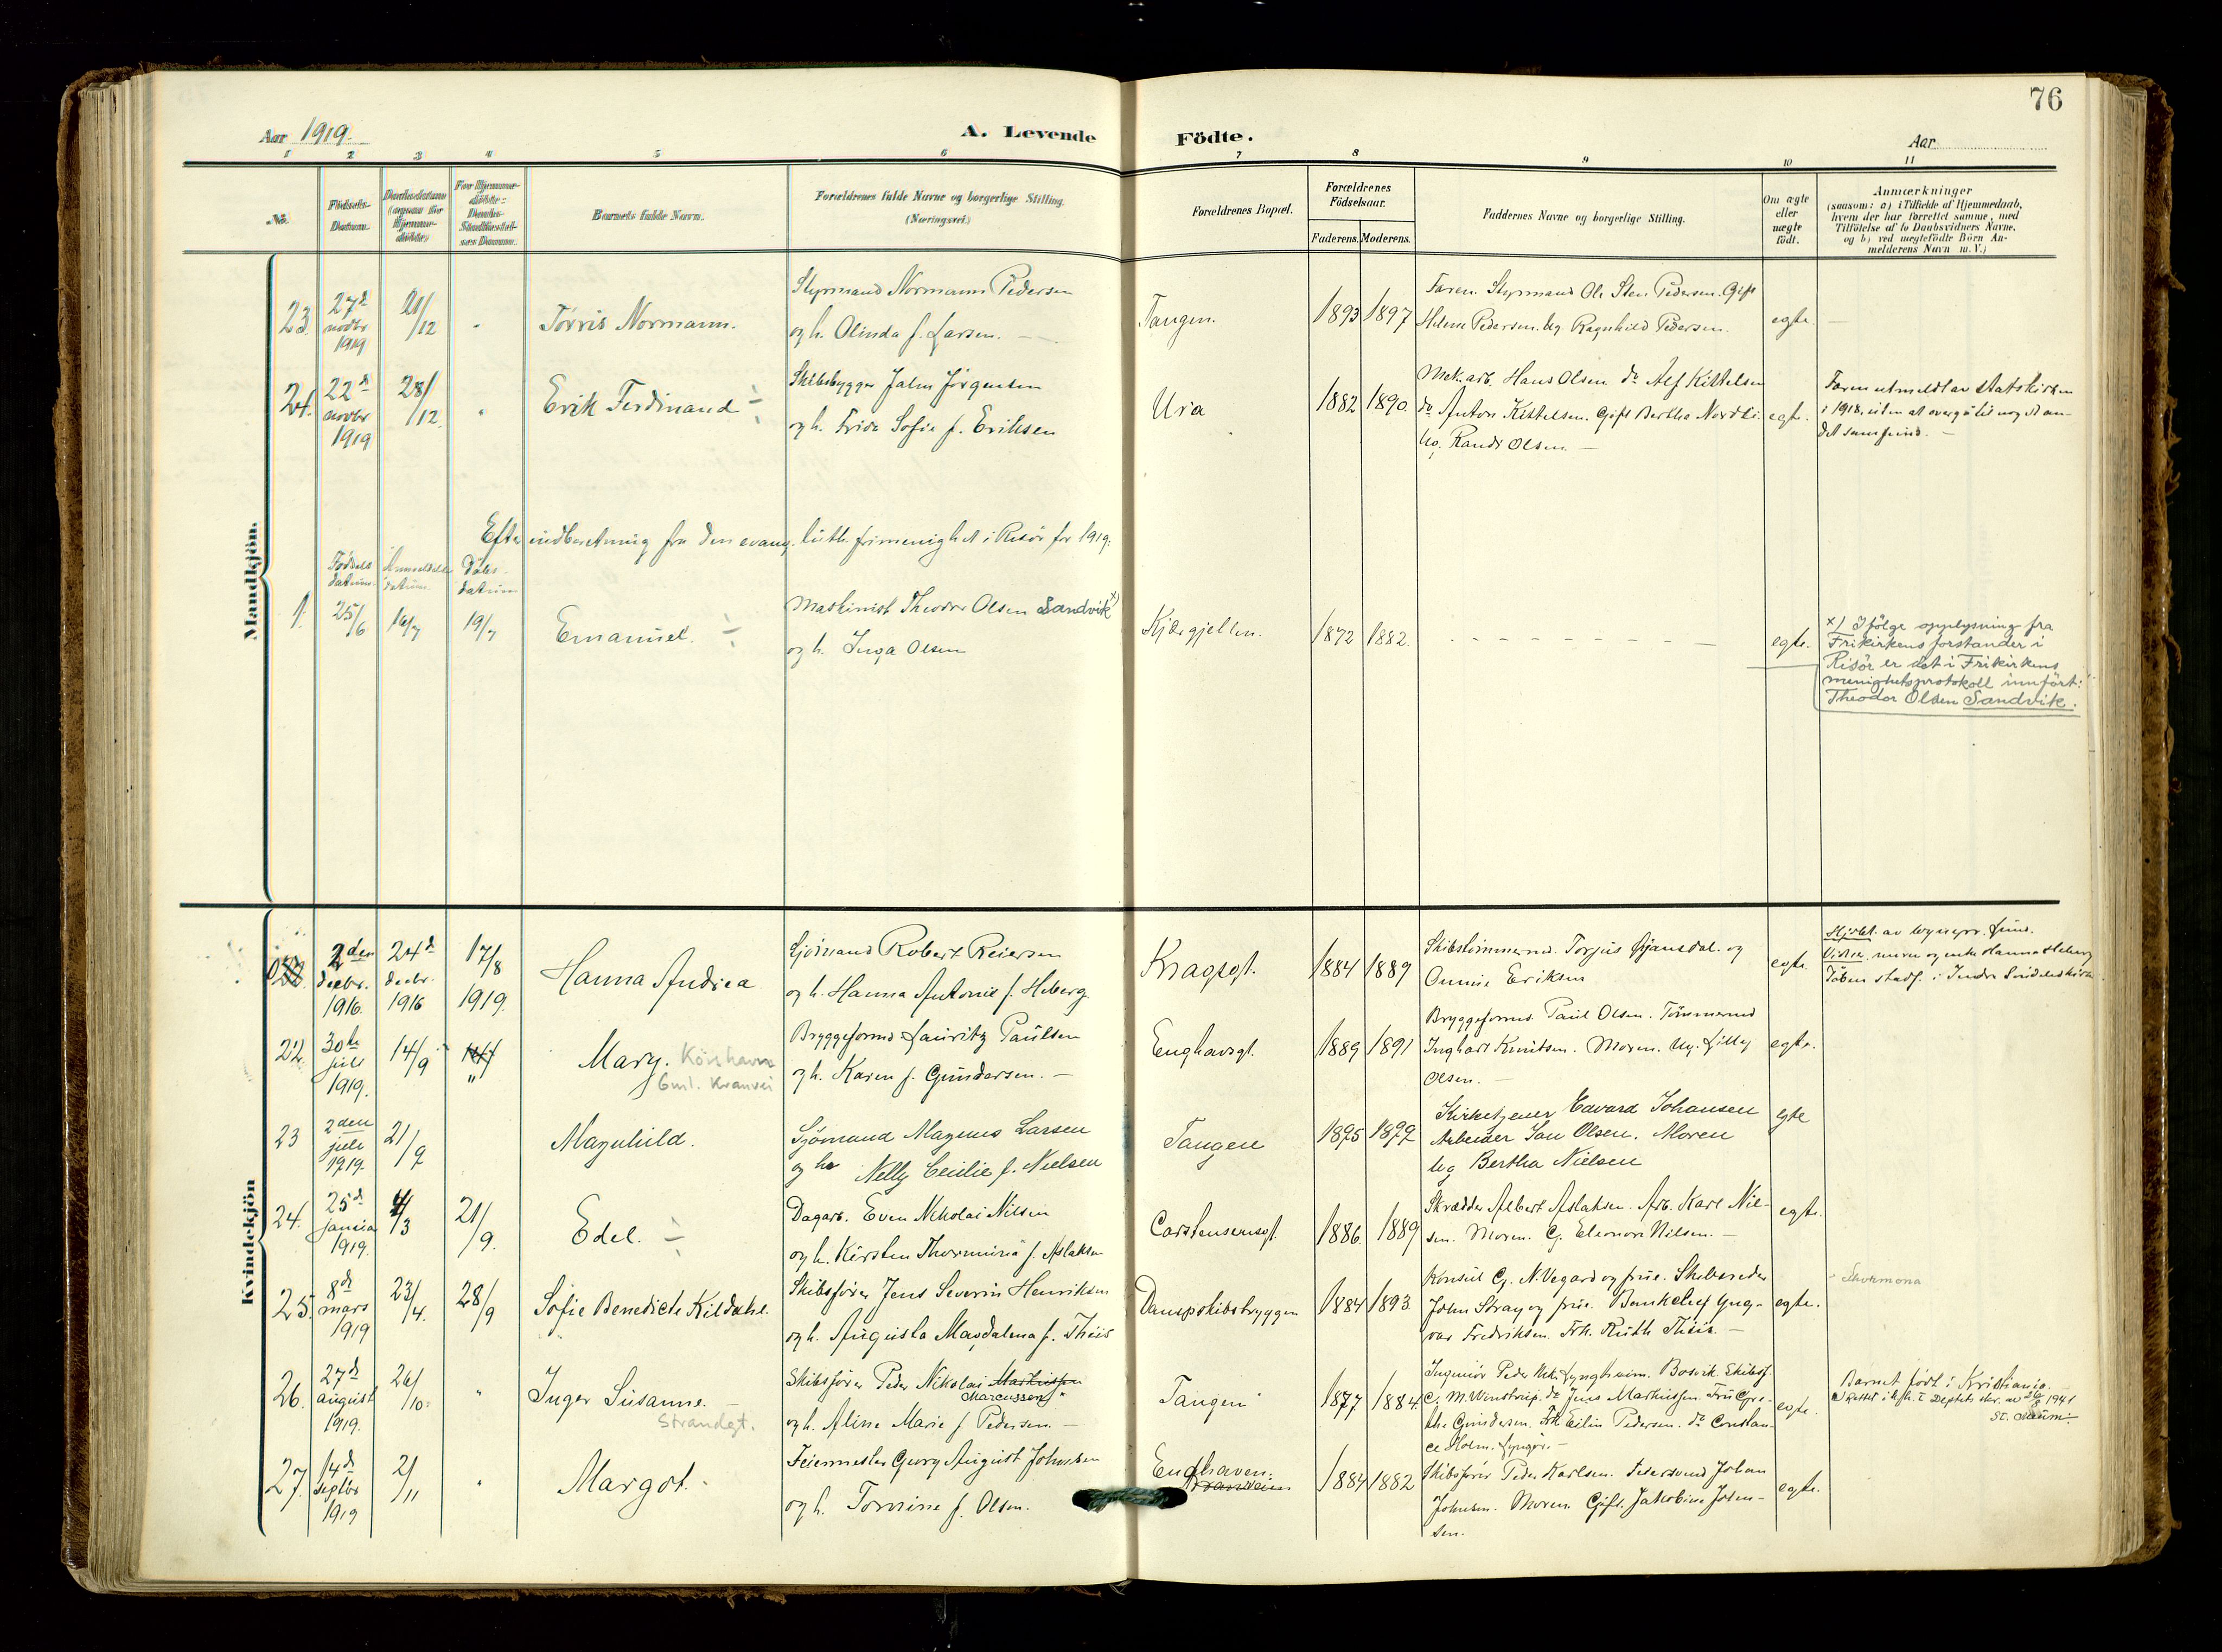 76
Aar 1919.
A. Levende
Födte.
Aar
1 2 3 4 5 6 7 8 9 10 11
No.
Födsels-
Datum.
Daabsdatum
(ogsaa for
Hjemme-
döbte)
For Hjemme-
döbte:
Daabs-
Stadfæstel-
ses Datum.
Barnets fulde Navn.
Forældrenes fulde Navne og borgerlige Stilling
(Næringsvei.)
Forældrenes Bopæl.
Forældrenes
Födselsaar.
Faderens. Moderens.
Faddernes Navne og borgerlige Stilling.
Om ægte
eller
uægte
födt.
Anmærkninger
(saasom: a) i Tilfælde af Hjemmedaab,
hvem der har forrettet samme, med
Tilföielse af to Daabsvidners Navne,
og b) ved uægtefödte Börn An-
melderens Navn m. V.)
Mandkjön.
23.
27d
novbr
1919
21/12
"
Torris Normann.
Styrmand Normann Pedersen
og h. Olinda f. Larsen. —
Tangen.
1893
1897
Faren. Styrmand Ole Sten Pedersen. Gift
Helene Pedersen. Ug. Ragnhild Pedersen.
egte.
24.
22d
novbr
1919
28/12
"
Erik Ferdinand ÷
Skibsbygger Jalm Jørgensen
og h. Frida Sofie f. Eriksen
Ura
1882
1890.
Mek. arb. Hans Olsen do Alf Kittelsen
do Anton Kittelsen. Gift Bertha Nordli.
Ug. Randi Olsen. —
egte.
Faren utmeldt av statskirken
i 1918, uten at overgå til noget an-
det samfund. —
Efter indberetning fra den evang. luth. frimenighet i Risør for 1919.
Fødsels
datum.
Anmeldels
datum
Dåbs-
datum
1.
25/6
16/7
19/7
Emanuel. ÷
Maskinist Theodor Olsen Sandvik x)
og h. Inga Olsen
Kjærgjellen.
1872
1882.
egte.
x) Ifölge opplysning fra
Frikirkens forstander i
Risör er det i Frikirkens
menighetsprotokoll innfört:
Theodor Olsen Sandvik.
Kvindekjön
2den
decbr.
1916.
24d
decbr.
1916
17/8
1919.
Hanna Andrea
Sjömand Robert Reiersen
og h. Hanna Antonie f. Heberg.
Kragsgt.
1884
1889
Skibstømmermd. Torjus Gjønsdal. og
Onnine Eriksen
egte.
Hjdbt. av
Vidner. muren og enke Hanna Heberg
Dåben stadf. i Indre Søndeled kirke.
22.
30te
juli
1919.
14/9
"
Mary. Köishavn
Gml. Kranvei
Bryggeformd Lauritz Paulsen
og h. Karen f. Gundersen. —
Enghavsgt.
1889
1891
Bryggeformd. Paul Olsen. Tömmermd
Inghart Knutsen. Moren. Ug. Lilly
Olsen. —
egte.
23
2den
juli
1919.
21/9
Magnhild.
Sjömand Magnus Larsen
og h. Nelly Cecilie f. Nielsen
Tangen
1895
1899
Kirketjener Edvard Johansen
Arbeider Jan Olsen. Moren
Ug Bertha Nielsen
egte
24.
25d
januar
1919.
4/3
21/9.
Edel. ÷
Dagarb. Even Nikolai Nilsen
og h. Kirsten Thormina f. Aslaksen
Carstensensgt.
1886.
1889
Skrædder Albert Aslaksen. Arb. Karl Nil-
sen. Moren. G. Eleonore Nilsen. —
egte.
25.
8d
mars
1919
23/4.
28/9
Sofie Benedicte Kildahl.
Skibsfører Jens Severin Henriksen
og h. Augusta Magdalena f. Thiis
Dampskibsbryggen
1884
1893.
Konsul G. N. Vegard og frue. Skibsreder
John Stray og frue. Bankchef Yng-
var Fredriksen. Frk. Ruth Thiis. —
egte.
26.
27d
august
1919.
26/10.
"
Inger Susanne. —
Strandgt.
Skibsfører Peder Nikolai Markussen
Marcussen
og h. Aline Marie f. Pedersen. —
Tangen
1877
1884.
Ingeniør Peder Lyngheim. Bosvik. Skibsf.
C. M. Winstrup. do Jens Markussen. Fru Gre-
the Gundersen. Frk Eilin Pedersen. do Constan-
ce Holm. Lyngør. —
egte.
Barnet födt i Kristiania.
Rettet i h. t. Deptets skr. av 26/8 1941
27.
14d
septbr
1919
2/11
"
Margot. -
Feiermester Georg August Johnsen
og h. Tomine f. Olsen.
Enghaven.
1884
1882
Skibsfører Peder Karlsen. Feiersvend Johan
Johnsen. Moren. Gift. Jakobine Josen-
sen.
egte.